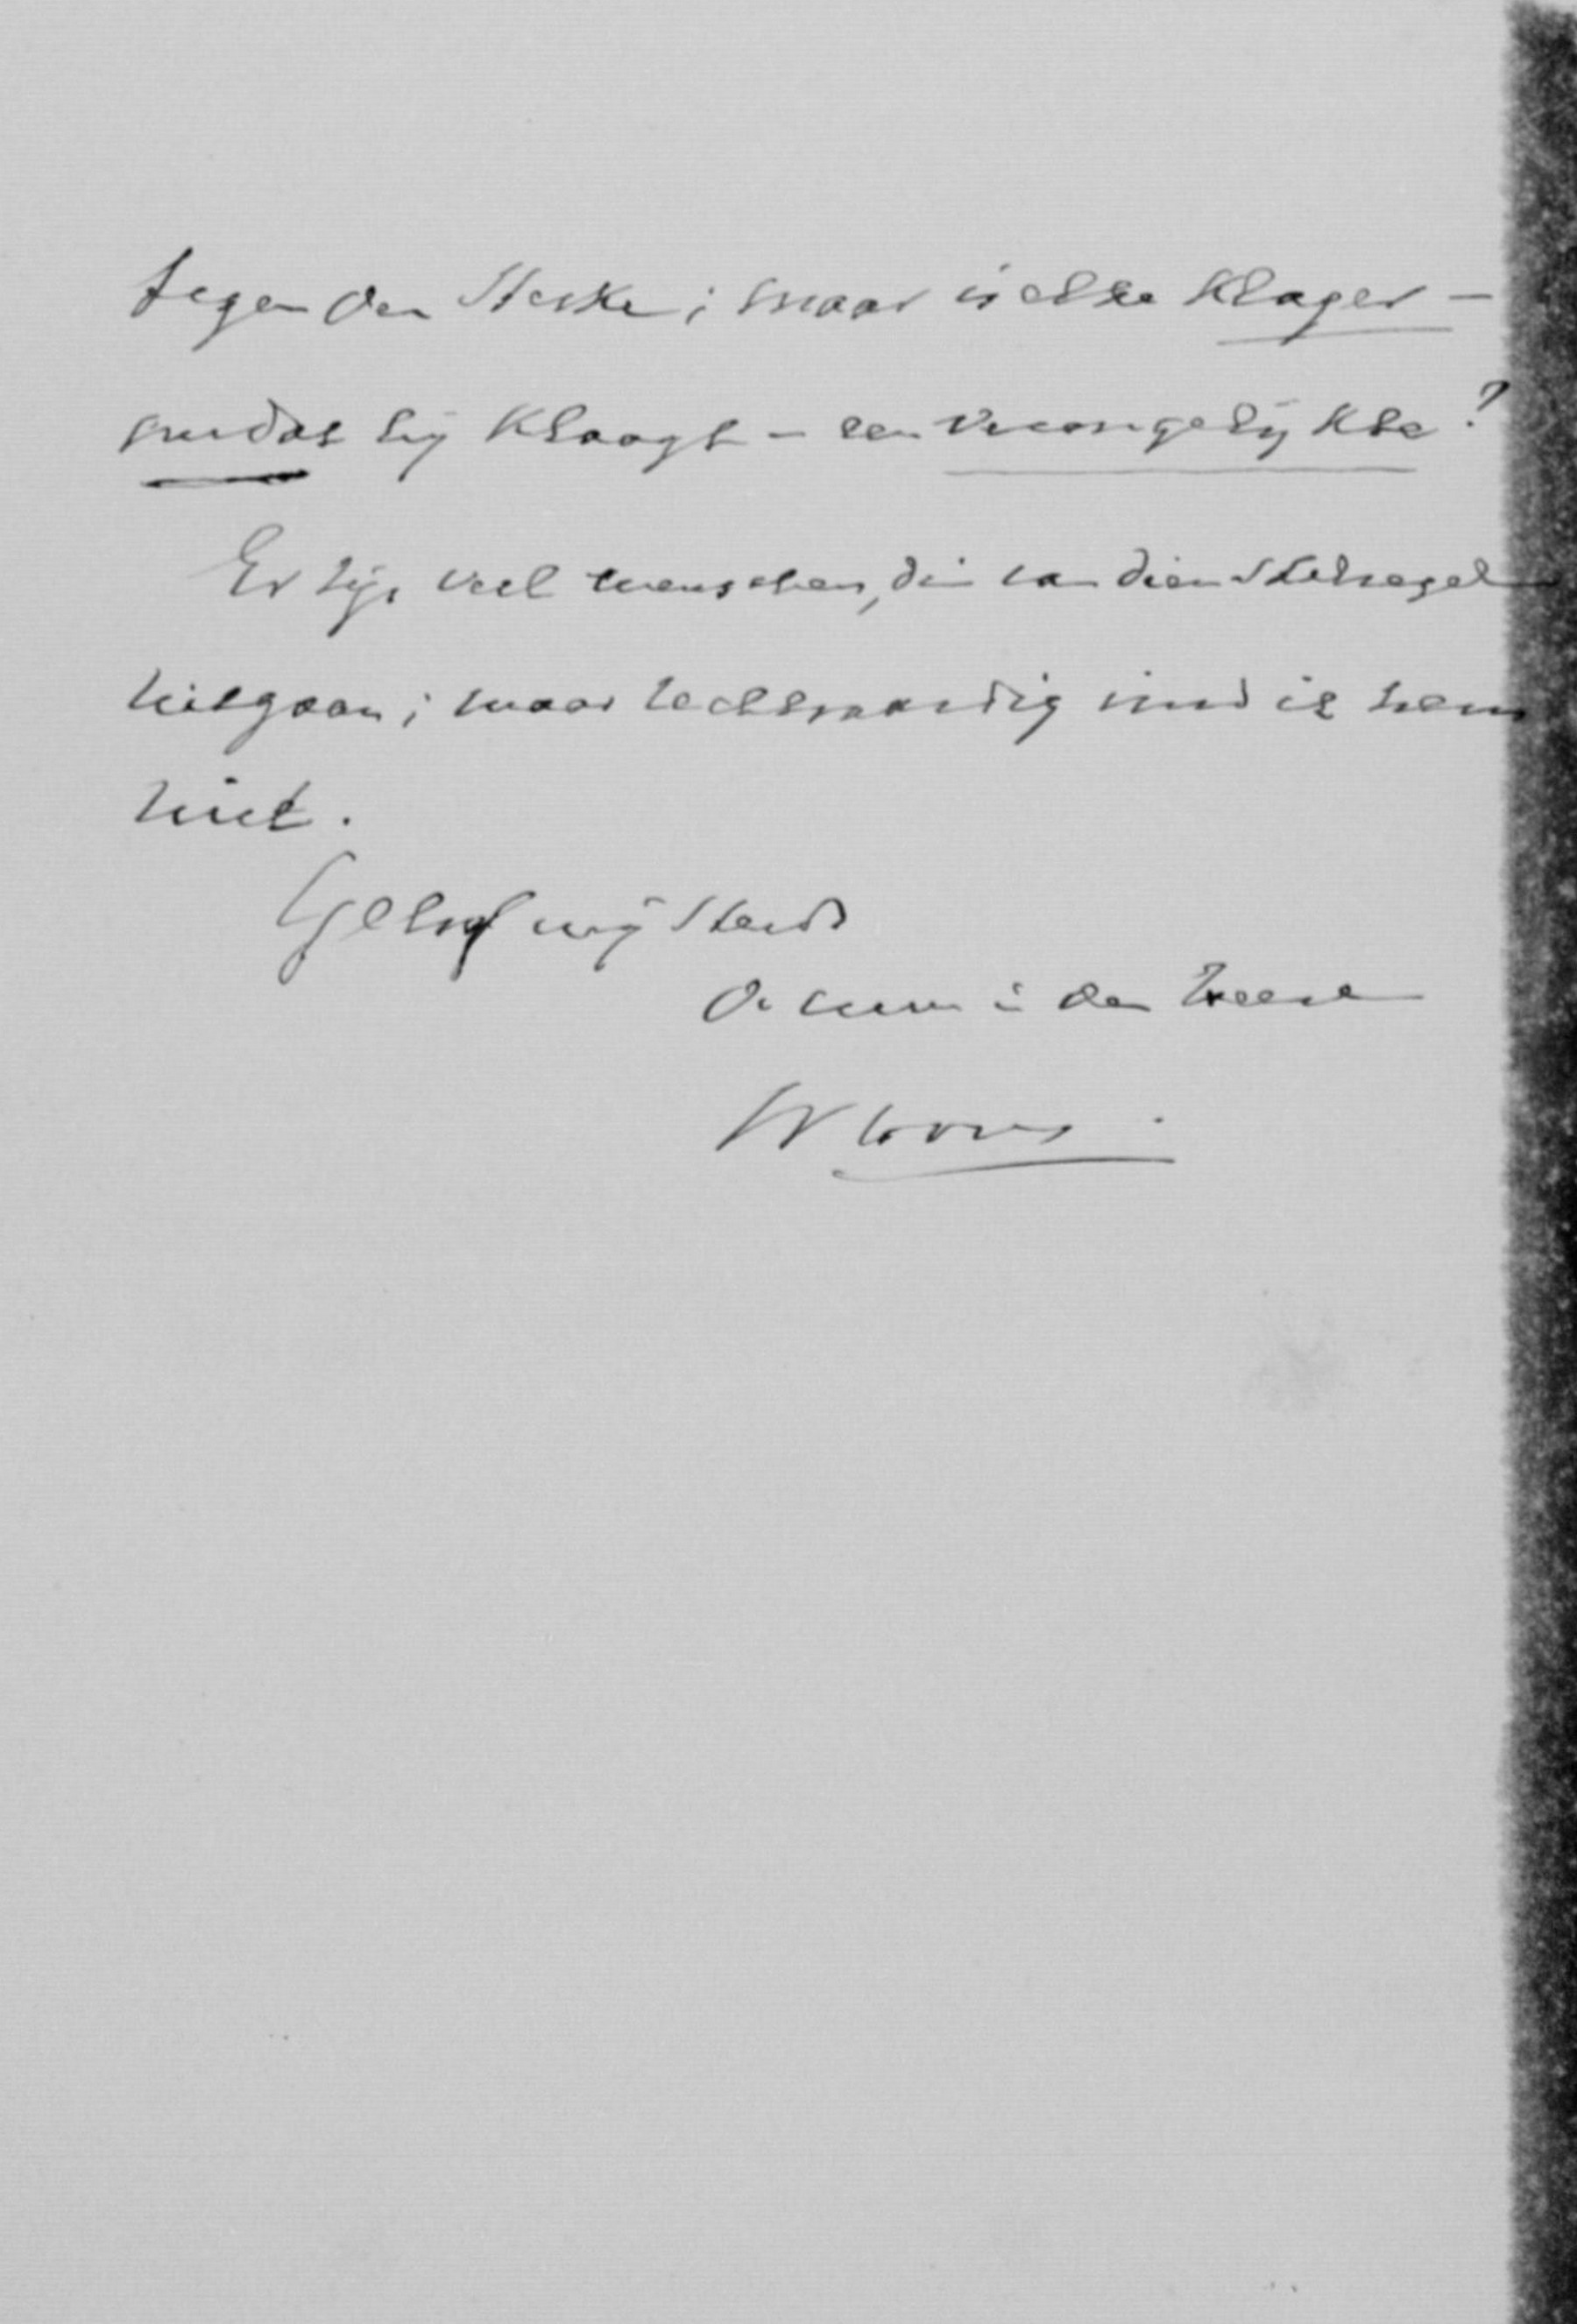 tegen den Sterke; maar is elke klager –
omdat hij klaagt – een verongelijkte?
Er zijn veel menschen, die van dien stelregel
uitgaan; maar rechtvaardig vind ik hem
niet.
Geloof mij steeds
den